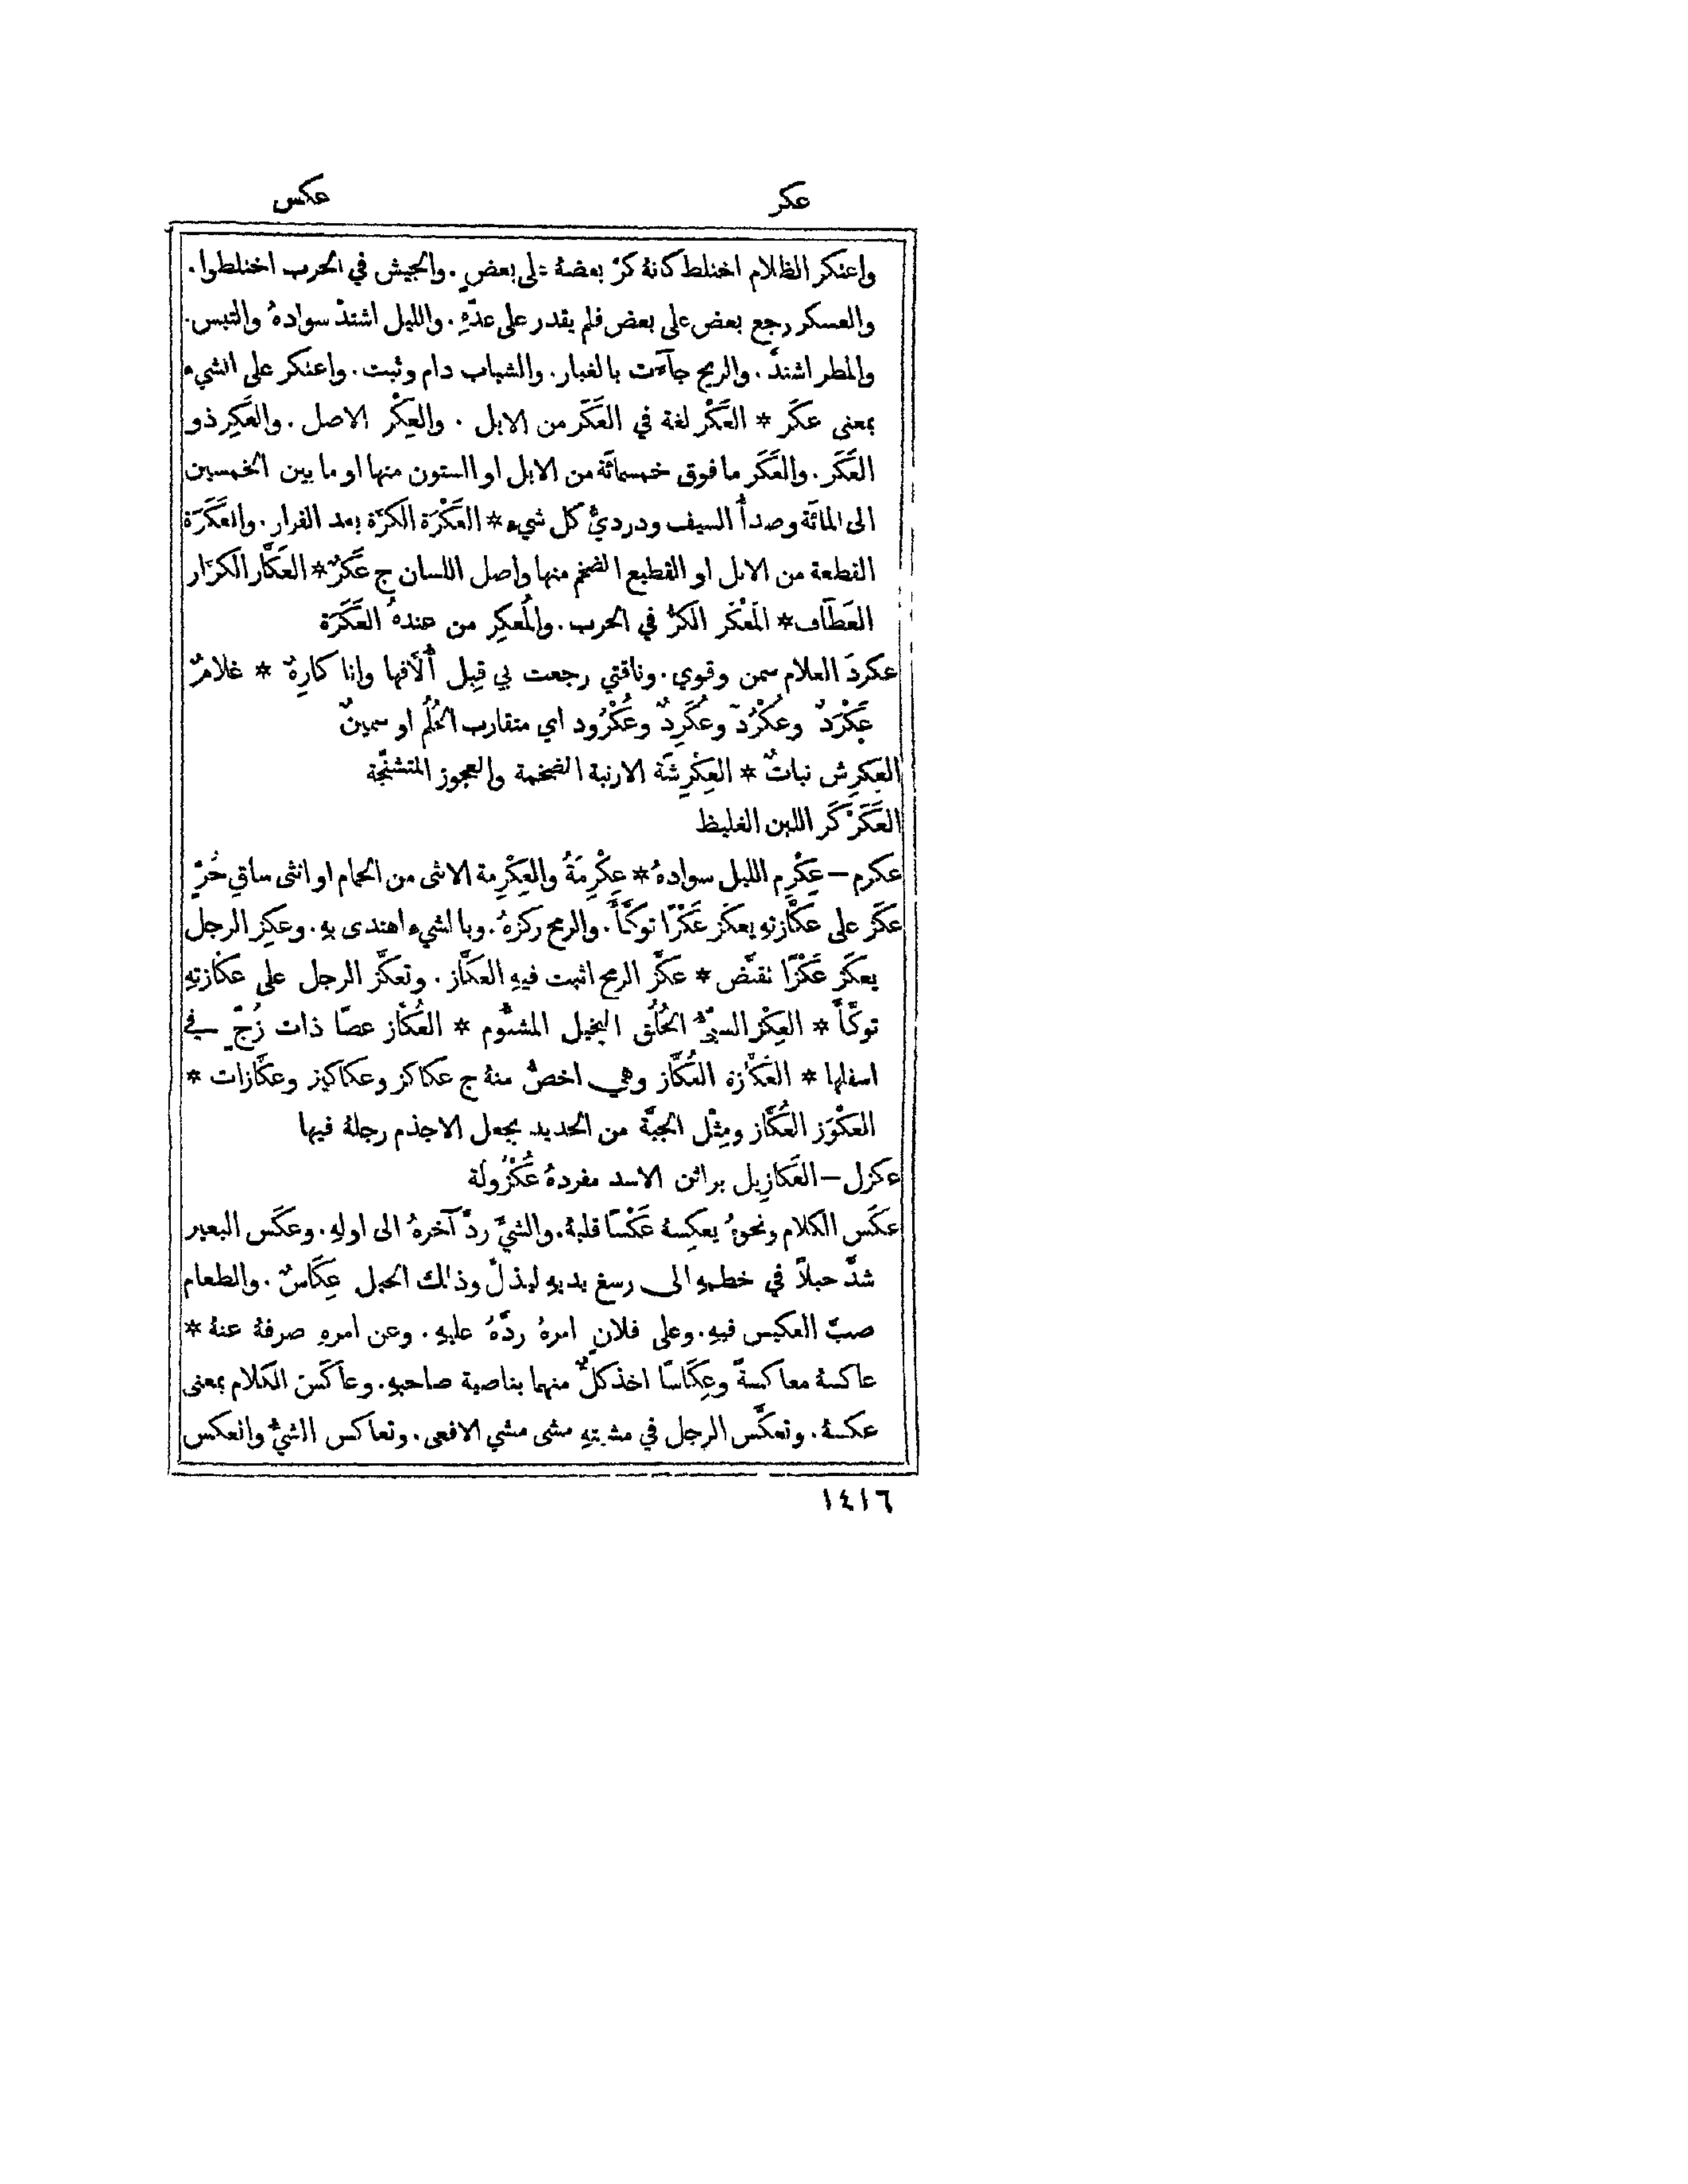 عكر
عكس
واعتكر الظلام اختلط كانهُ كرَّ بعضهُ على بعضٍ. والجيش في الحرب اختلطوا.
والعسكر رجع بعض على بعض فلم يقدر على عدّهِ. والليل اشتدّ سوادهُ والتبس.
والمطر اشتدّ. والريح جآءت بالغبار. والشباب دام وثبت. واعتكر على الشيء
بمعنى عكَر * العَكْر لغة في العَكَر من الابل. والعِكْر الاصل. والعَكِر ذو
العَكَر. والعَكَر ما فوق خمسمائَة من الابل او الستون منها او ما بين الخمسين
الى المائَة وصدأُ السيف ودرديُّ كل شيء * العَكْرَة الكرّة بعد الفرار. والعَكَرَة
القطعة من الابل او القطيع الضخم منها واصل اللسان ج عَكَرٌ * العَكَّار الكرَّار
العَطَّاف * المَعْكَر الكرُّ في الحرب. والمُعكِر من عندهُ العَكَرَة
عكردَ الغلام سمن وقوي. وناقتي رجعت بي قِبل أُلَّافها وانا كارِهٌ * غلامٌ
عِكْرَدٌ وعُكْرُدٌ وعُكَرِدٌ وعُكْرُود اي متقارب الحُلُم او سمينٌ
العِكرِش نباتٌ * العِكْرِشَة الارنبة الضخمة والعجوز المتشنّجة
العَكَرْكَر اللبن الغليظ
عكرم – عِكْرِم الليل سوادهُ * عِكْرِمَةُ والعِكْرِمة الانثى من الحمام او انثى ساقِ حُرٍّ
عكَز على عكَّازتهِ يعكز عَكْزًا توكَّأَ. والرمح ركزهُ. وبالشيء اهتدى بهِ. وعكِز الرجل
يعكَز عَكَزًا تقبَّض * عكَّز الرمح اثبت فيهِ العكَّاز. وتعكَّز الرجل على عكازتهِ
توكَّأَ * العِكْز السيّئُ الخُلُق البخيل المشئُوم * العُكَّاز عصًا ذات زُجٍّ في
اسفلها * العُكَّازة العُكَّاز وهي اخصُّ منهُ ج عكاكز وعكاكيز وعكَّازات *
العكْوَز العُكَّاز ومِثْل الجبَّة من الحديد يجعل الاجذم رجلهُ فيها
عكزل – العَكازِيل براثن الاسد مفردهُ عُكْزُولة
عكَس الكلام ونحوهُ يعكِسهُ عَكْسًا قلبهُ. والشيَّ ردَّ آخرهُ الى اولهِ. وعكَس البعير
شدَّ حبلاً في خطمهِ الى رسغ يديهِ ليذلَّ وذلك الحبل عِكَاسٌ. والطعام
صبّ العكيس فيهِ. وعلى فلانٍ امرهُ ردَّهُ عليهِ. وعن امرهِ صرفهُ عنهُ *
عاكسهُ معاكسةً وعِكَاسًا اخذ كلٌّ منهما بناصية صاحبهِ. وعاكَسَ الكلام بمعنى
عكسهُ. وتعكَّس الرجل في مشيتهِ مشى مشي الافعى. وتعاكس الشيُّ وانعكس
١٤١٦